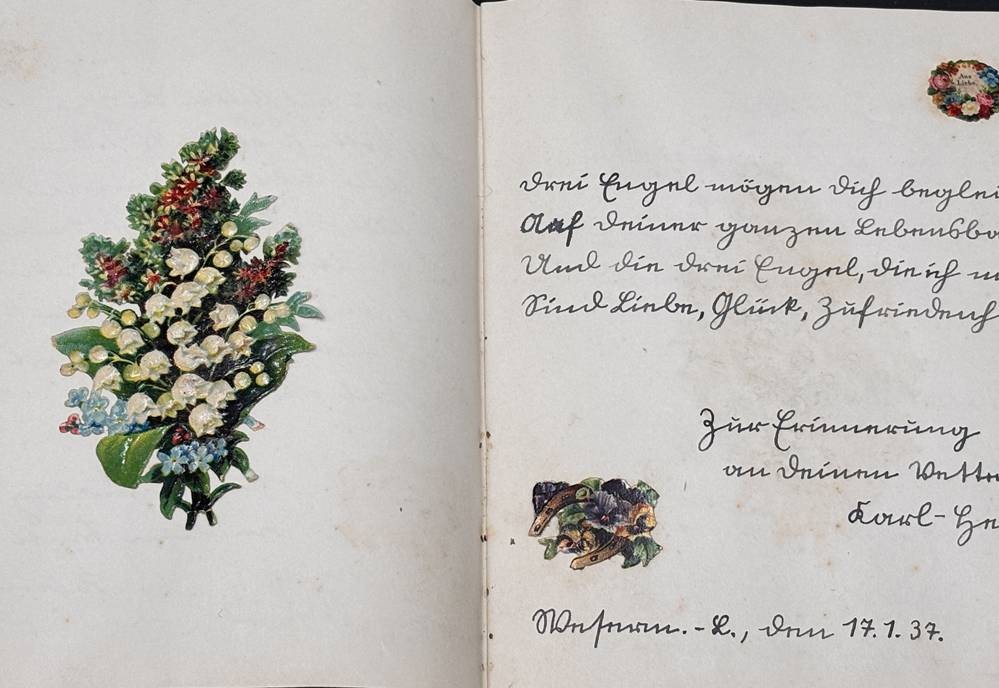 Aus
Liebe.
Drei Engel mögen Dich beglei
Auf deiner ganzen Lebensba
Und die drei Engel, die ich m
Sind Liebe, Glück, Zufriedenh
Zur Erinnerung
an Deinen Vette
Karl-He
Weserm.-L., den 17.1.37.